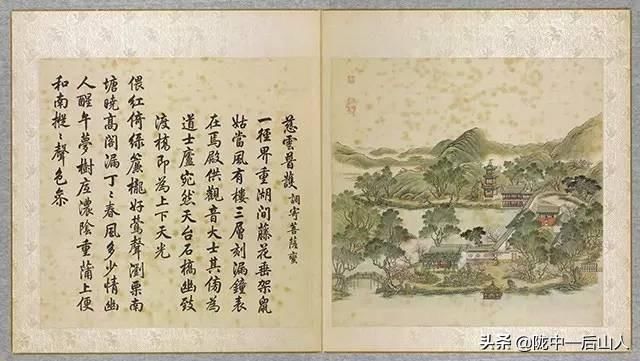 慈雲普護 調寄菩薩蠻
一徑界重湖間藤花垂架鼠
姑當風有樓三層刻漏鐘表
在焉殿供觀音大士其傍為
道士廬宛然天台石橋幽致
渡橋即為上下天光
偎紅倚綠簾櫳好鶯聲瀏栗南
塘曉高閣漏丁〻春風多少情幽
人醒午夢樹底濃陰重蒲上便
和南〻聲色參
头条 @陇中一后山人